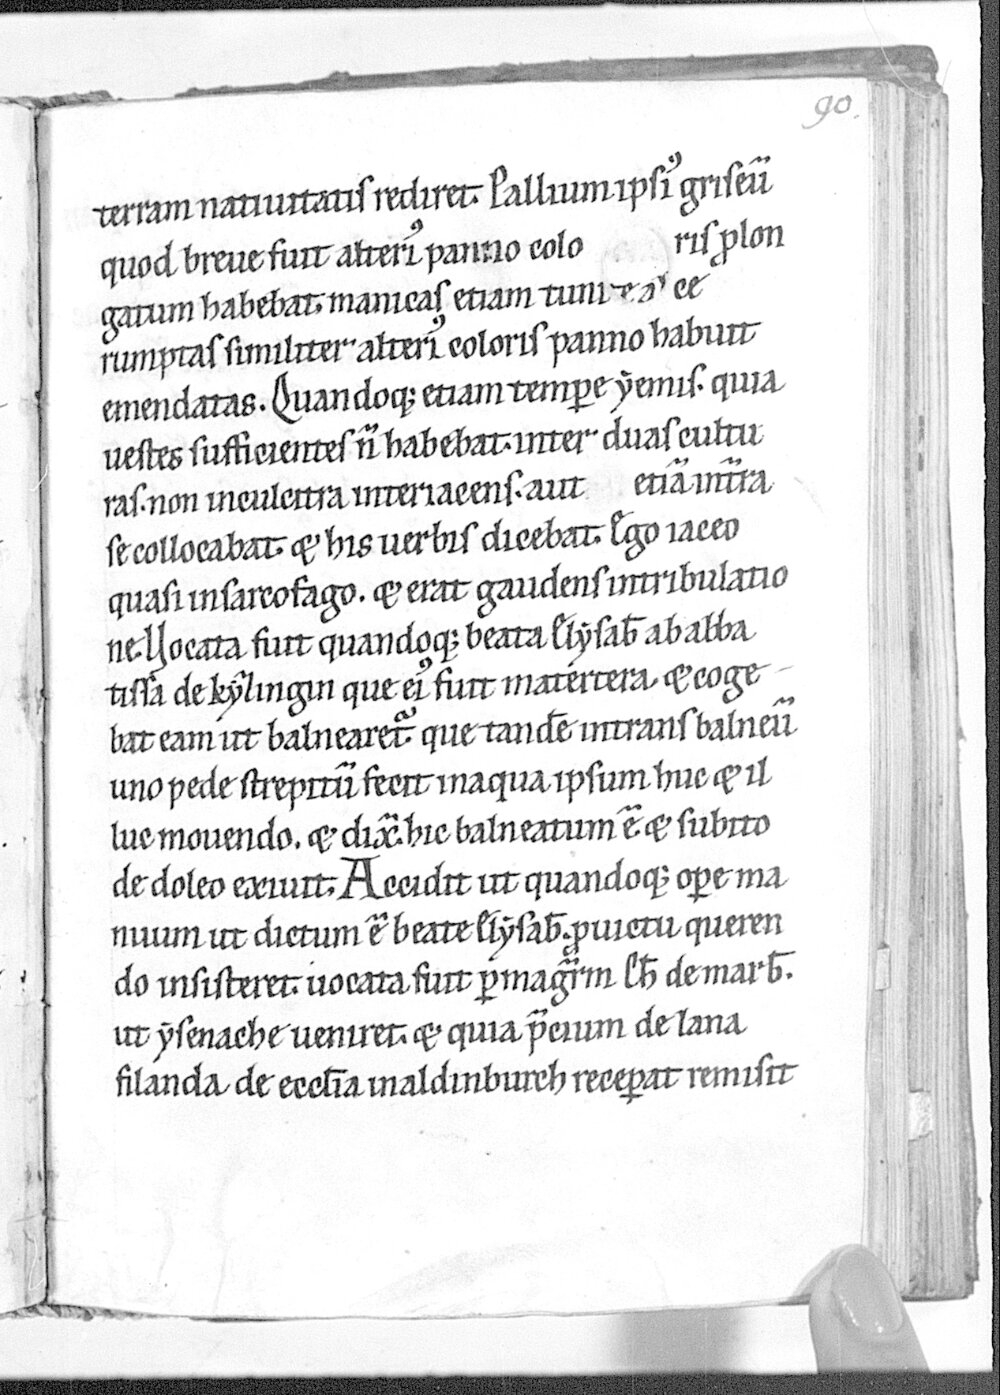 90.
terram natiuitatis rediret. Pallium ipsiꝰ griseū
quod breue fuit alteriꝰ panno colo ris ꝓlon
gatum habebat. manicas etiam tuni ce
rumptas similiter alteriꝰ coloris panno habuit
emendatas. Quandoqꝫ etiam tempꝑe ẏemis. quia
uestes sufficientes n̄ habebat. inter duas cultu
ras. non inculcitra interiacens. aut etiā intra
se collocabat. ⁊ his uerbis dicebat. Ego iaceo
quasi insarcofago. ⁊ erat gaudens intribulatio
ne. Uocata fuit quandoqꝫ beata Elẏsab̄ ab abba
tissa de kẏlingin que eiꝰ fuit matertera. ⁊ coge
bat eam ut balnearet᷑ que tand̄e intrans balneū
uno pede strepitū fecit inaqua ipsum huc ⁊ il
luc mouendo. ⁊ dix̄. hic balneatum ē ⁊ subito
de doleo exiuit. Accidit ut quandoqꝫ oꝑe ma
nuum ut dictum ē beate Elẏsab̄. ꝓuictu queren
do insisteret. uocata fuit ꝑ magr̄m Ch̄ de marb̄.
ut ẏsenache ueniret. ⁊ quia p̄cium de lana
filanda de eccl̄ia inaldinburch receꝑat remisit